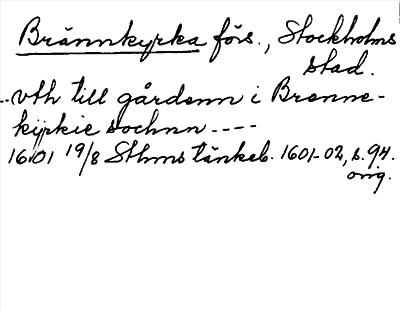 Brännkyrka förs., Stockholms
stad.
..vth till gårdenn i Brenne-
kyrkie sochnn ----
1601 19/8 Sthms tänkeb. 1601-02, s. 94.
orig.